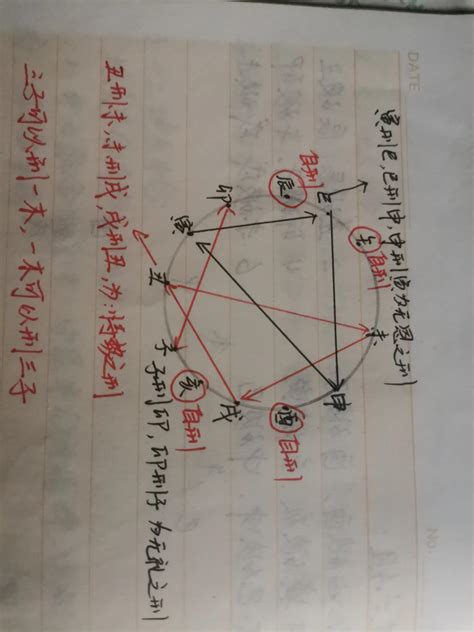 DATE
No:
寅刑巳,巳刑申,申刑寅为无恩之刑
自刑
辰
巳
午
自刑
未
申
酉
自刑
戌
亥
自刑
子
丑
寅
卯
子刑卯,卯刑子为无礼之刑
丑刑未,未刑戌,戌刑丑,为:恃势之刑
三子可以刑一木,一木可以刑三子